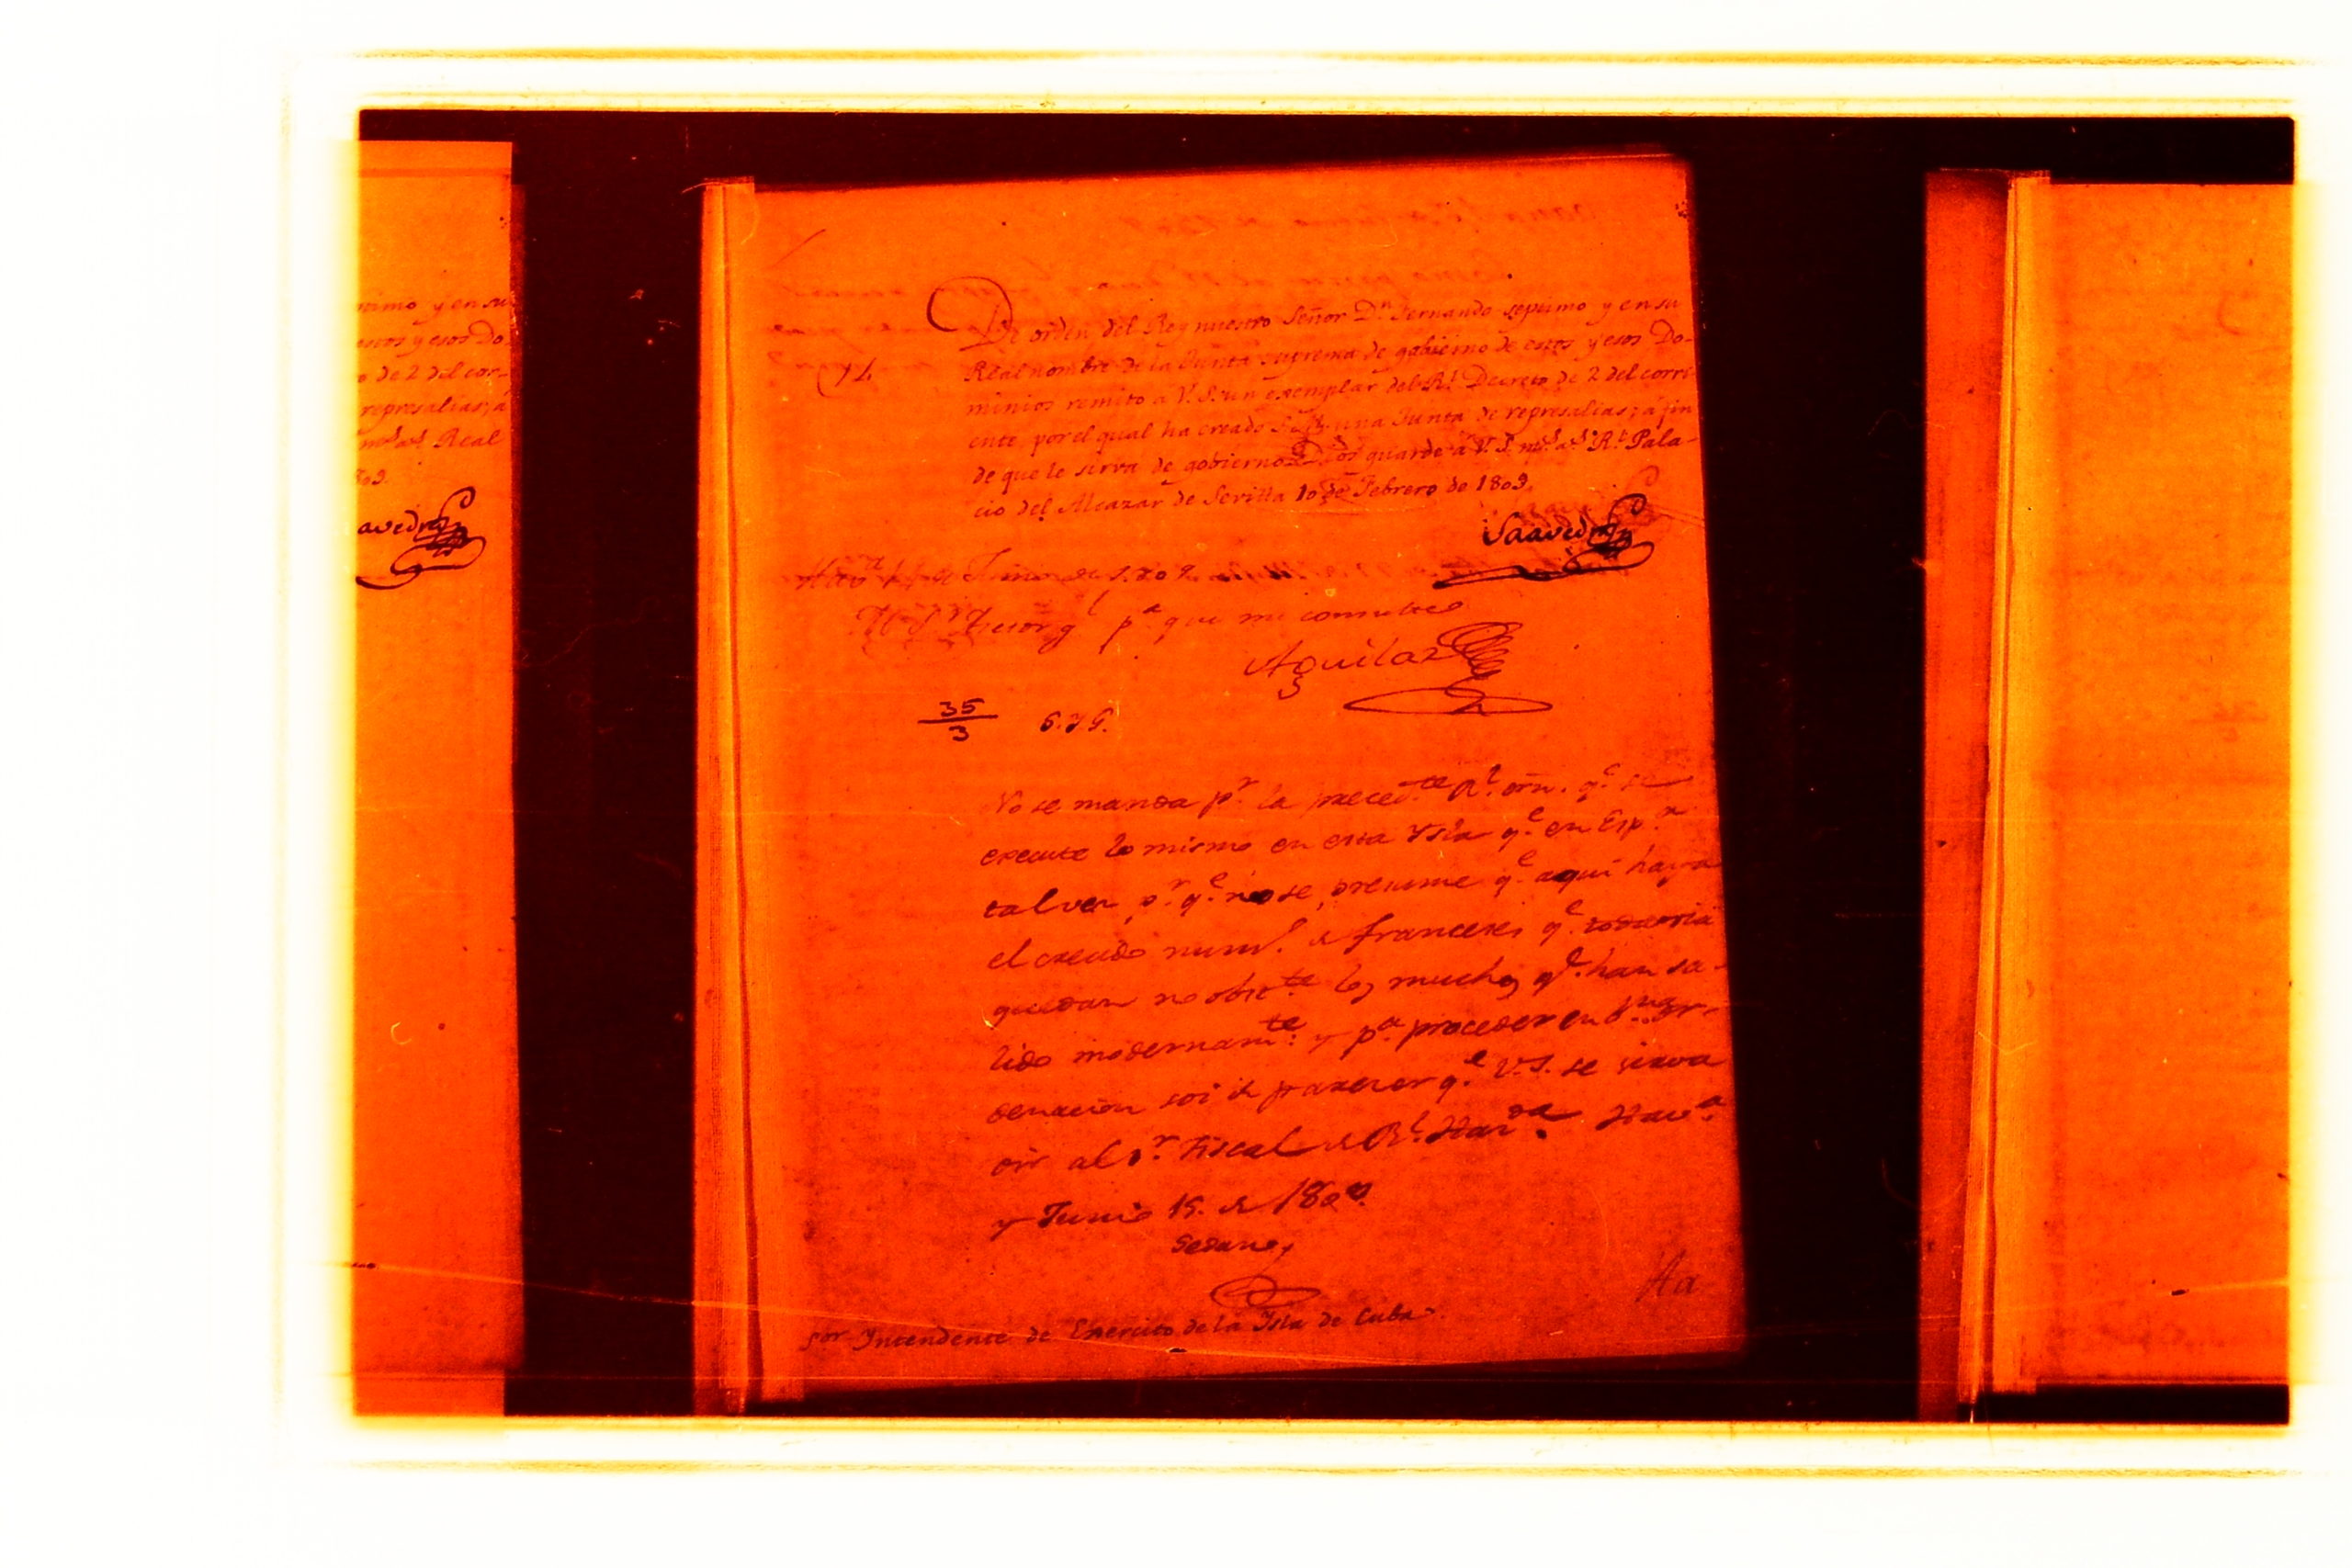 ptimo y en su
estos y esos Do
o de 2 del cor-
represalias; á
m.s a.s Real
809.
aavedra
De orden del Rey nuestro Señor D.n Fernando septimo y en su
Real nombre de la Junta suprema de gobierno de estos y esos Do-
minios remito a V. S. un exemplar del R.l Decreto de 2 del corri-
ente por el qual ha creado S. M. una Junta de represalias; á fin
de que le sirva de gobierno. Dios guarde á V. S. m.s a.s R.l Pala-
cio del Alcazar de Sevilla 10 de Febrero de 1809.
Saavedra
14
Hav.a 14 de Junio de 1809.
Al S.r Asesor g.l p.a que me consulte
Aguilar
35
3
S. Y. G.
No se manda p.r la preced.te R.l orn. q.e se
execute lo mismo en esta Ysla q.e en Esp.a
talvez p.r q.e no se presume q.e aqui haya
el crecido num.o de franceses q.e todavia
quedan no obst.te los muchos q.e han sa-
lido modernam.te: y p.a proceder en b.na or-
denacion soi de parecer q.e V.S. se sirva
oir al s.r Fiscal de R.l Haz.da Hav.a
y Junio 15. de 1809.
Sedano
Aa
sor Intendente de Exercito de la Isla de Cuba.